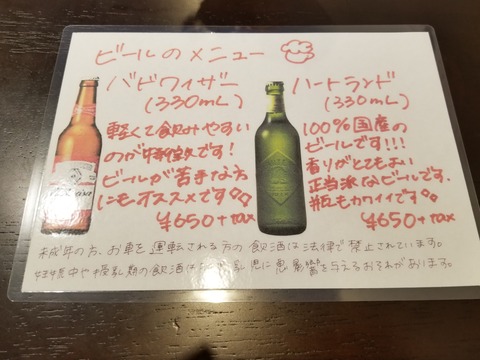 ビールのメニュー
バドワイザー
(330mL)
軽くて飲みやすい
のが特徴です!
ビールが苦手な方
にもオススメです
¥650+tax
ハートランド
(330mL)
100%国産の
ビールです!!!
香りがとてもよい
正当派なビールです.
瓶もカワイイです
¥650+tax
未成年の方、お車を運転される方の飲酒は法律で禁止されています。
妊娠中や授乳期の飲酒は 乳児に悪影響を与えるおそれがあります。